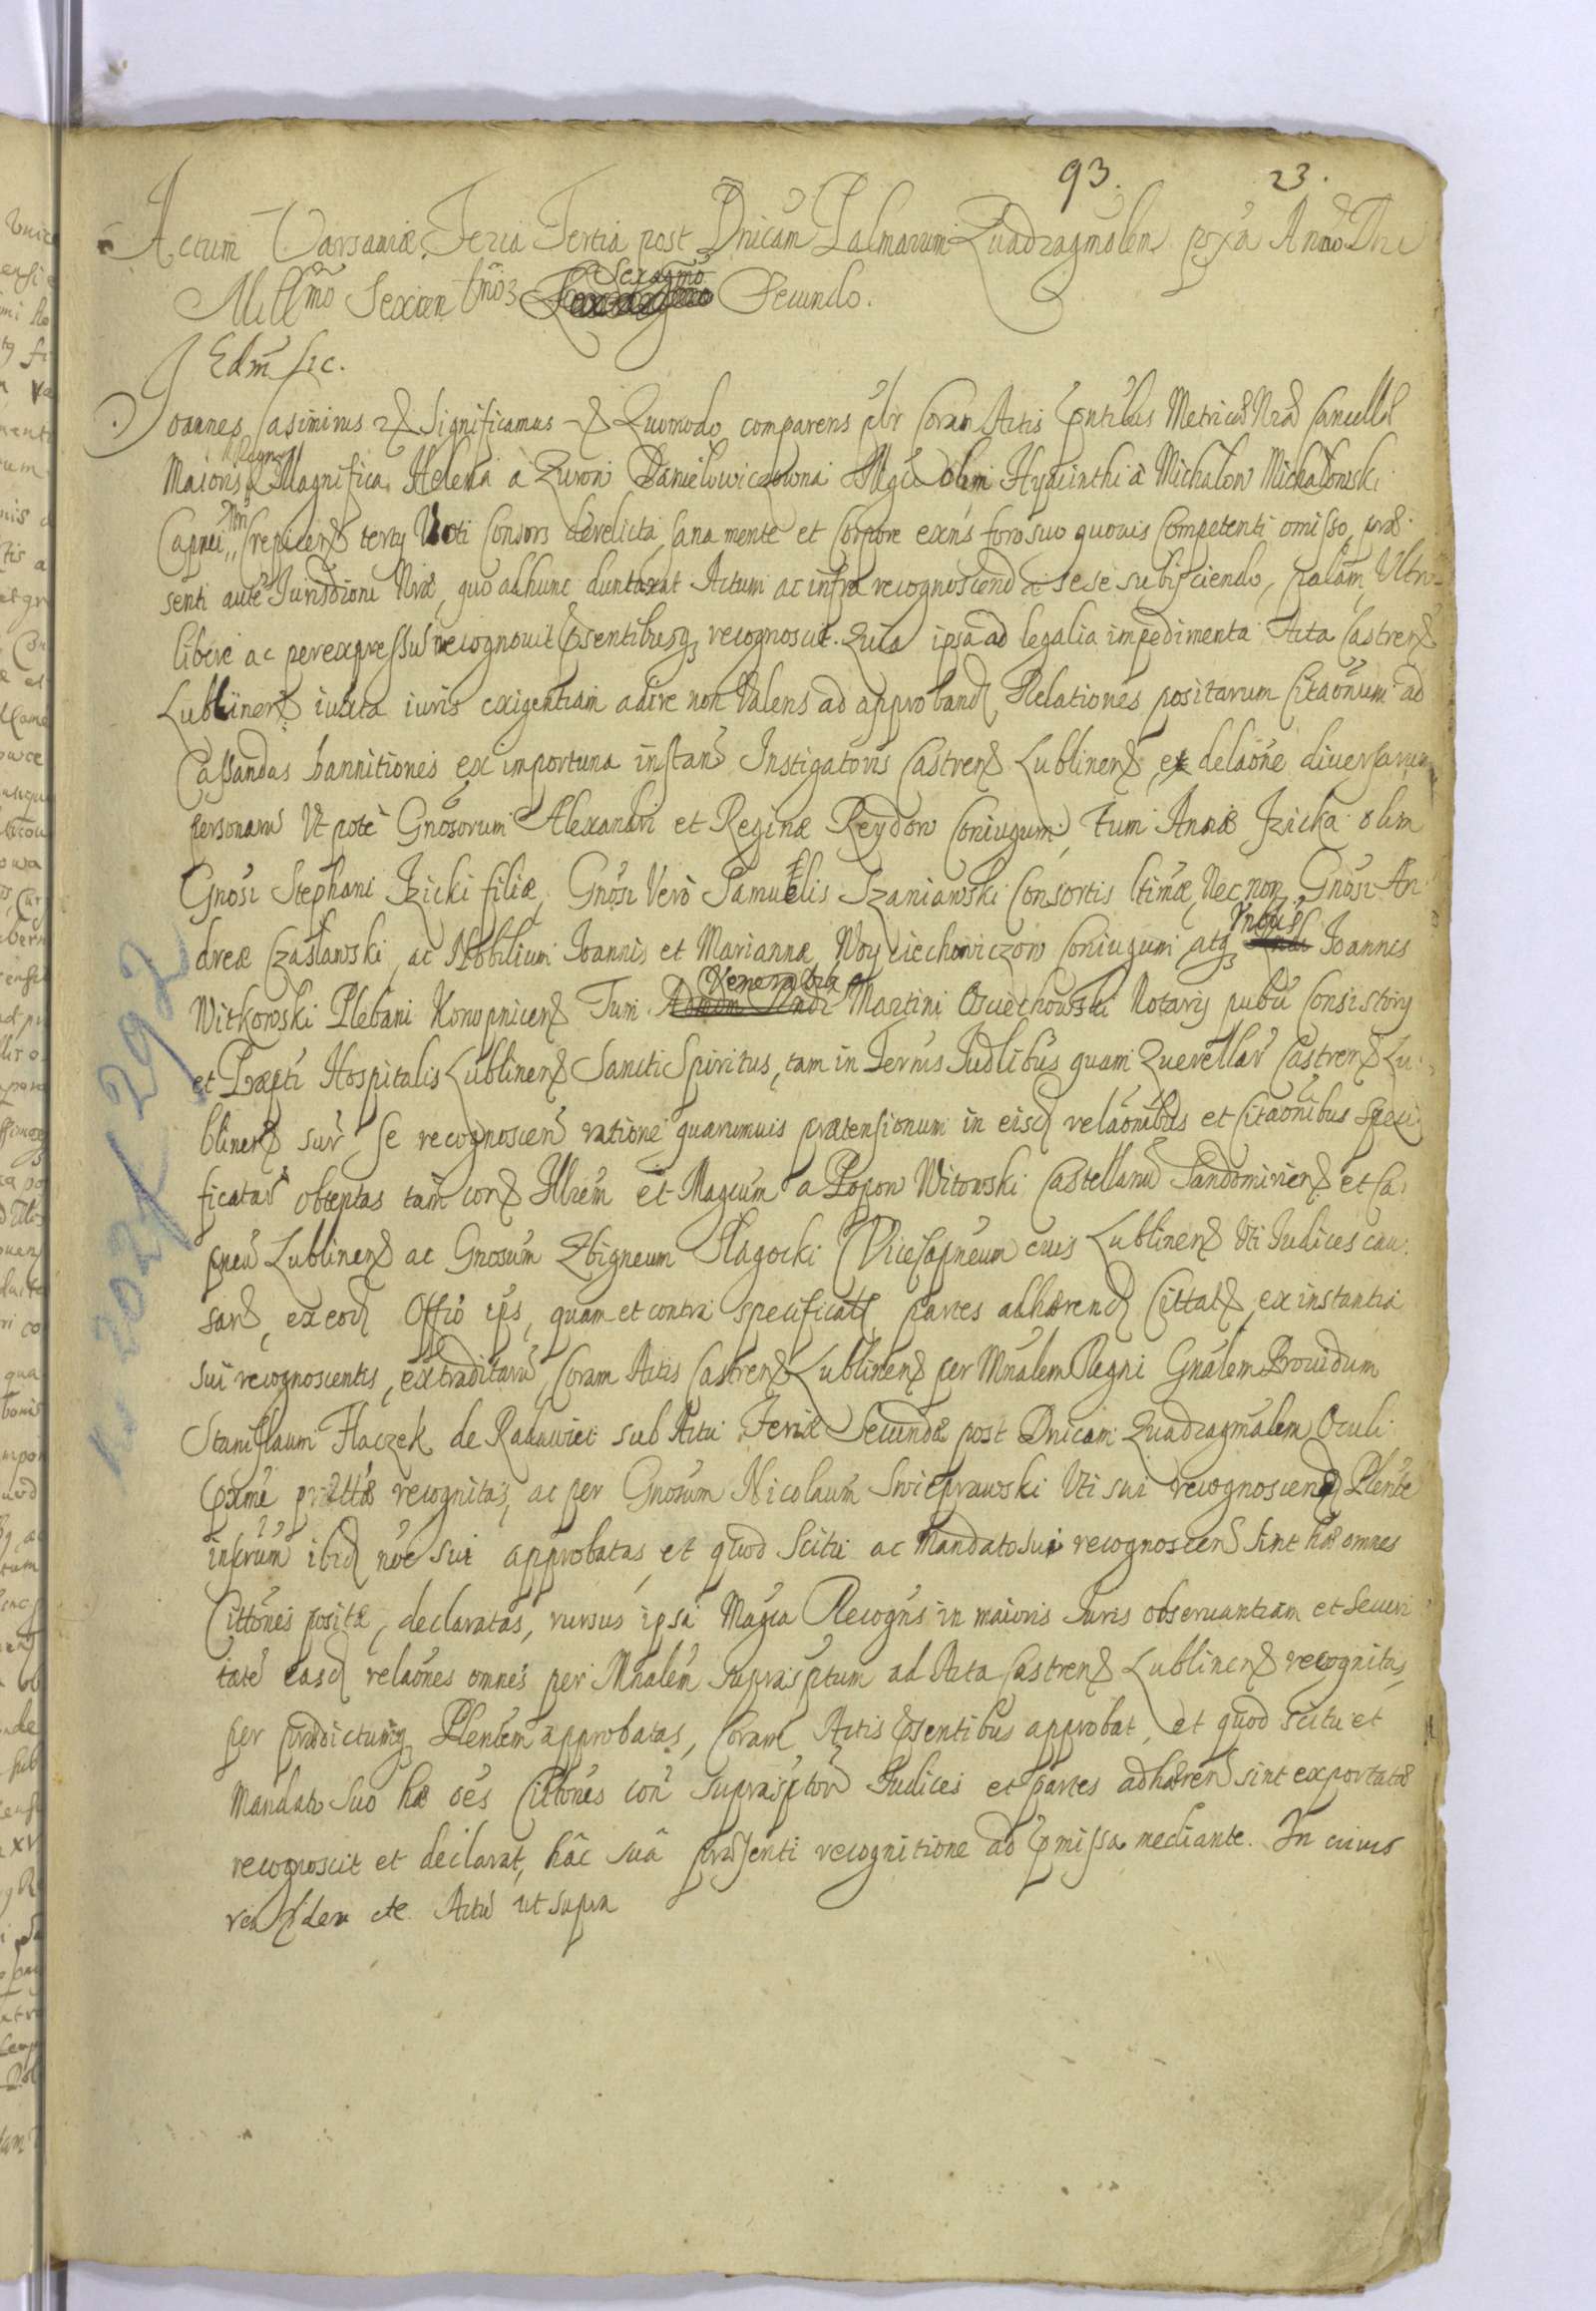 93. 23.
Actum Varsaviæ Feria Tertia post Dnicam Palmarum Quadragmalem pxa Anno Dni
Millmo Sexcen tmoq Sexagmo Secundo.
Edm Sic.
Joannes Casimirus &c Significamus &c Quomodo comparens plr Coram Actis pntibus Metrices Nræ Cancellæ
Maioris Regni Magnifica Helena à Zurow Danielowiczowna Mgci olim Hyacinthi à Michalow Michalowski
Capnei Crepicen tertij Voti Consors derelicta, sana mente et Corpore exens foro suo quovis Competenti omisso, præ
senti aute Jurisdioni Nræ, quo ad hunc duntaxat Actum ac infra recognoscend sese subijciendo, palam, Ultro
libere ac per expressu recognovit psentibusq recognoscit. Quia ipsa ad legalia impedimenta Acta Castren
Lublinen iuxta iuris exigentiam adire non Valens ad approband Relationes positarum Citaonum ad
Cassandas bannitiones ex importuna instan Instigatoris Castren Lublinen ex delaone diversarum
personaru Ut pote Gnosorum Alexandri et Reginæ Reydow Coniugum, tum Annæ Izicka olim
Gnosi Stephani Izicki filiæ, Gnosi Vero Samuelis Szaniawski Consortis ltimæ, Nec non Gnosi An
dreæ Czaslawski, ac Nobilium Joannis et Mariannæ Woyciechowiczow Coniugum atq Joannis
Witkowski Plebani Konopnicen Tum Venerabilis Martini Ociechowski Notarij publi Consistorij
et Præpti Hospitalis Lublinen Sancti Spiritus, tam in Ternis Judlibus quam Querellar Castren Lu
blinen sur se recognoscen ratione quarumvis prætensionum in eisd relaonibus et Citaonibus speci
ficatar obtentas tam con Illrem et Magcum a Popow Witowski Castellanu Sandomirien et Ca
pneu Lublinen ac Gnosum Zbigneum Slagocki Vicecapneum eius Lublinen Uti Judices cau
sar, ex eod Offio ips, quam et contra specificat partes adhærend Cittat, ex instantia
sui recognoscentis, extraditaru, Coram Actis Castren Lublinen per Mnalem Regni Gnalem Providum
Stanislaum Flaczek de Radawiec sub Actu Feriæ Secundæ post Dnicam Quadragmalem Oculi
pxme recognitas, ac per Gnosum Nicolaum Swieprawski Uti sui recognoscen Plente
ibid noe sui approbatas, et quod Scitu ac Mandato sui recognoscen sint hæ omnes
Cittones positæ, declaratas, rursus ipsa Magca Recogns in maioris Juris observantiam et Securi
tate easd relaones omnes per Mnalem suprasptum ad Acta Castren Lublinen recognitas,
per prædictumq Plentem approbatas, Coram Actis psentibus approbat, et quod scitu et
Mandato Suo hæ oes Cittones con suprasptos Judices et partes adhæren sint exportatæ
recognoscit et declarat, hâc suâ præsenti recognitione ad pmissa mediante. In cuius
rei fidem etc. Actu ut supra